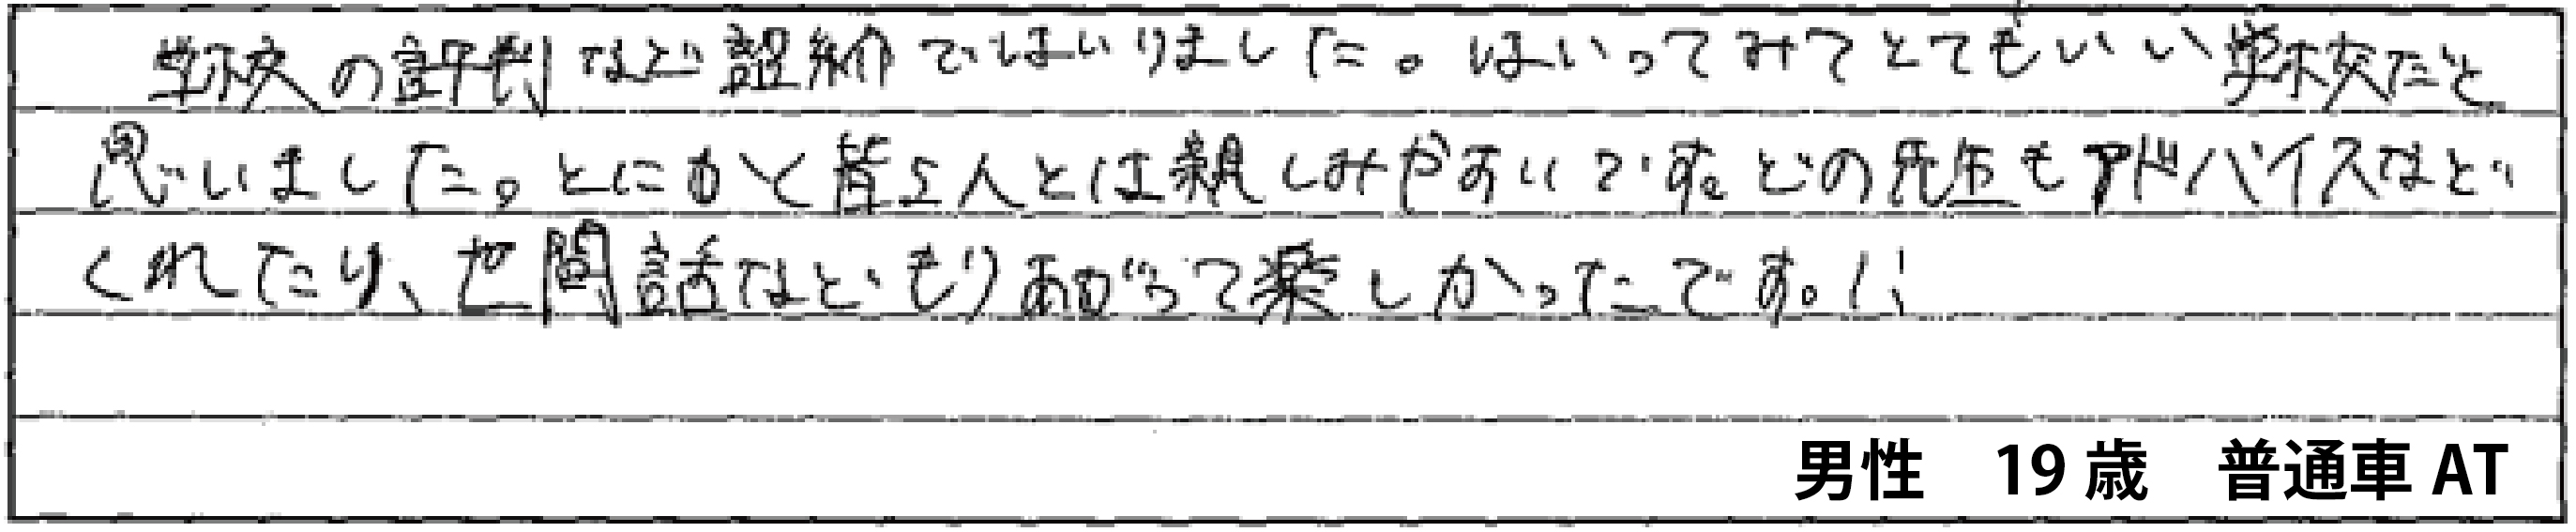 学校の評判など紹介ではいりました。はいってみてとてもいい学校だと
思いました。とにかく皆さんとは親しみやすいです。どの先生もアドバイスなど
くれたり、世間話などもりあがって楽しかったです。!!
男性 19歳 普通車AT